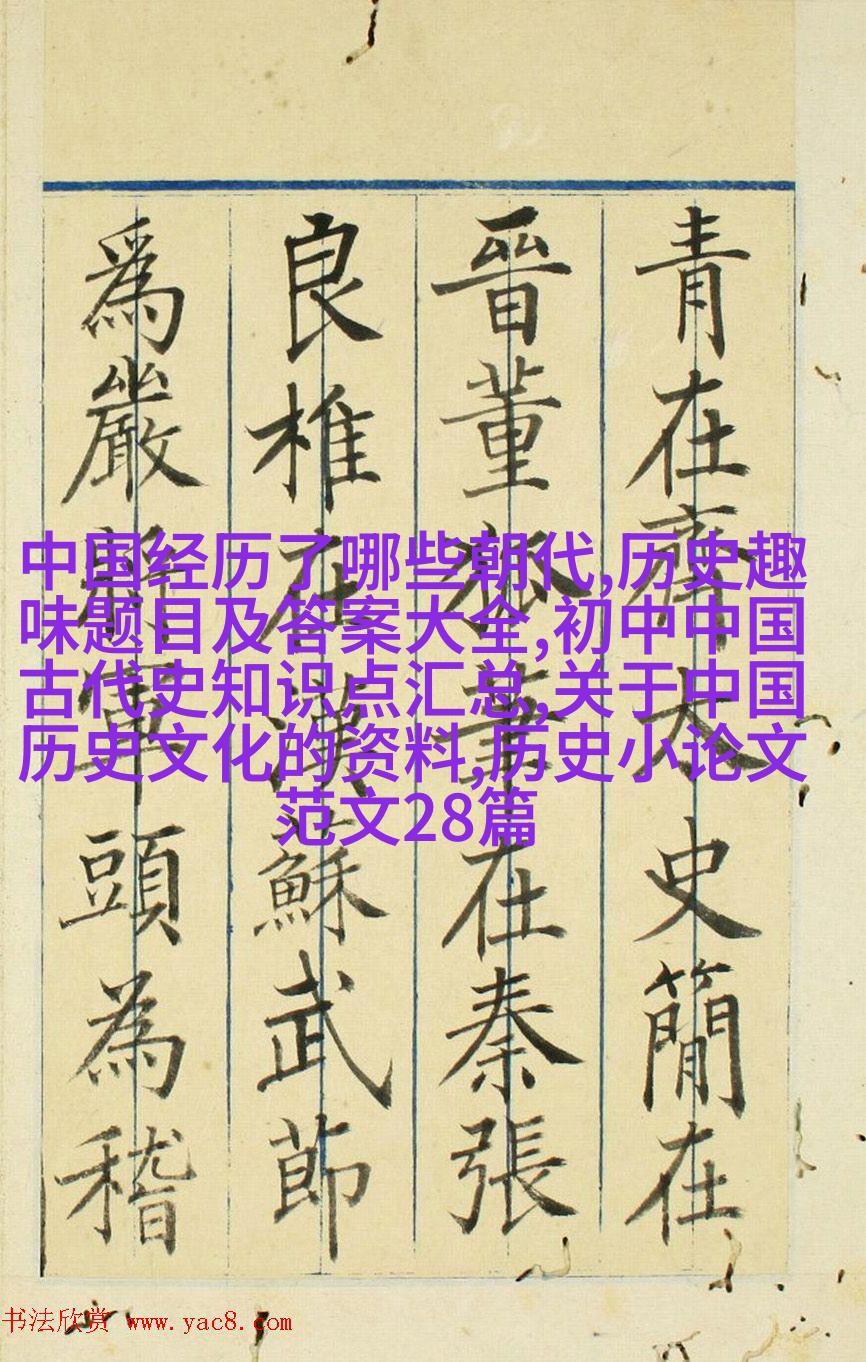 青在齊太史簡在
晉董狐筆在秦張
良椎在漢蘇武節
爲嚴將軍頭為稽
中国经历了哪些朝代,历史趣
味题目及答案大全,初中中国
古代史知识点汇总,关于中国
历史文化的资料,历史小论文
范文28篇
书法欣赏 www.yac8.com